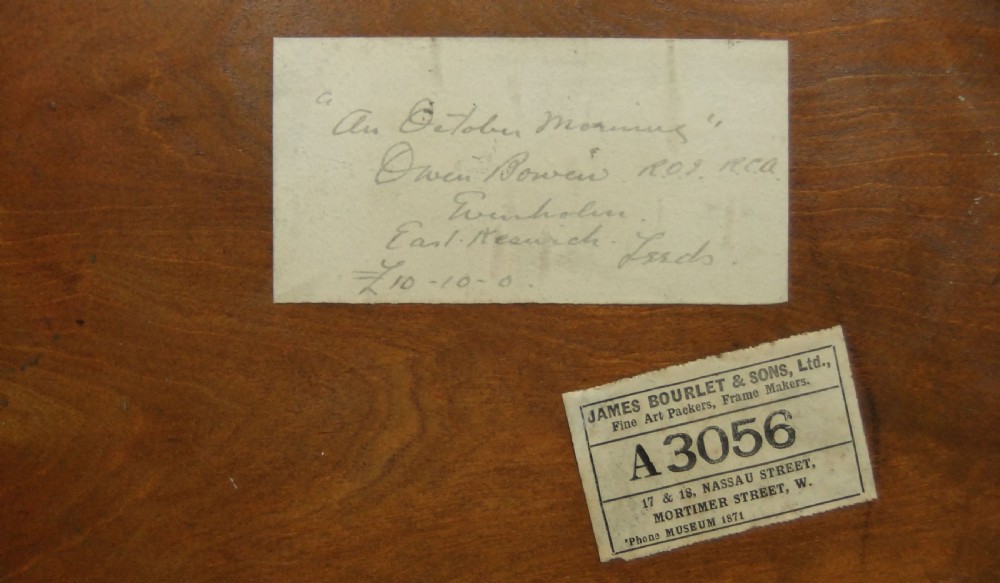 "An October Morning"
Owen Bowen R.O.I. R.C.A.
East Keswick. Leeds.
£10-10-0.
JAMES BOURLET & SONS, Ltd.,
Fine Art Packers, Frame Makers.
A3056
17 & 18, NASSAU STREET,
MORTIMER STREET, W.
'Phone MUSEUM 1871